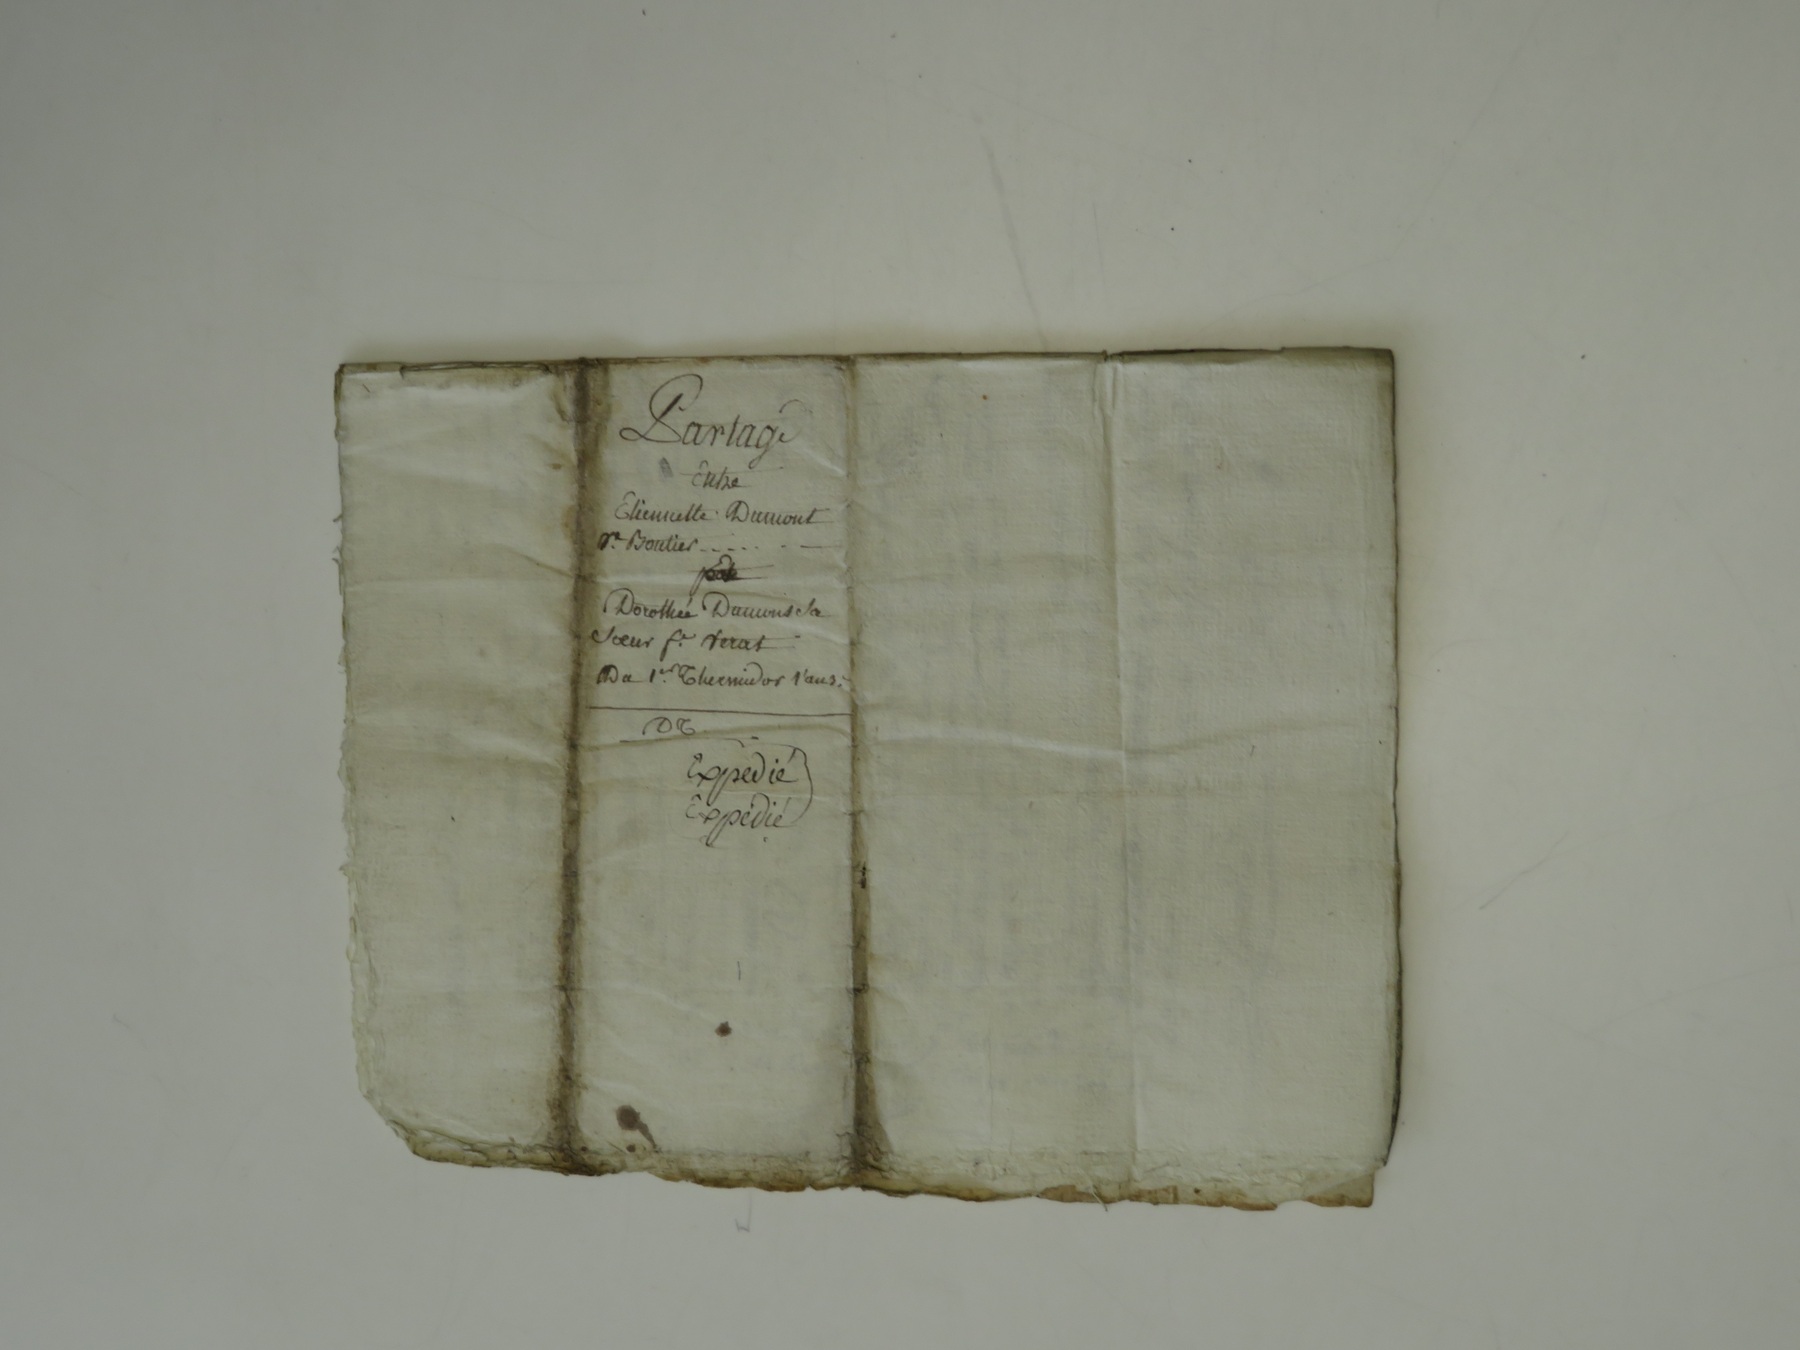 Partage
Entre
Etiennette Dumont
Ve Boulier
Dorothée Dumont Sa
Sœur fe Verat
Du 1er Thermidor l'an 3.
DC
Expédié
Expédié